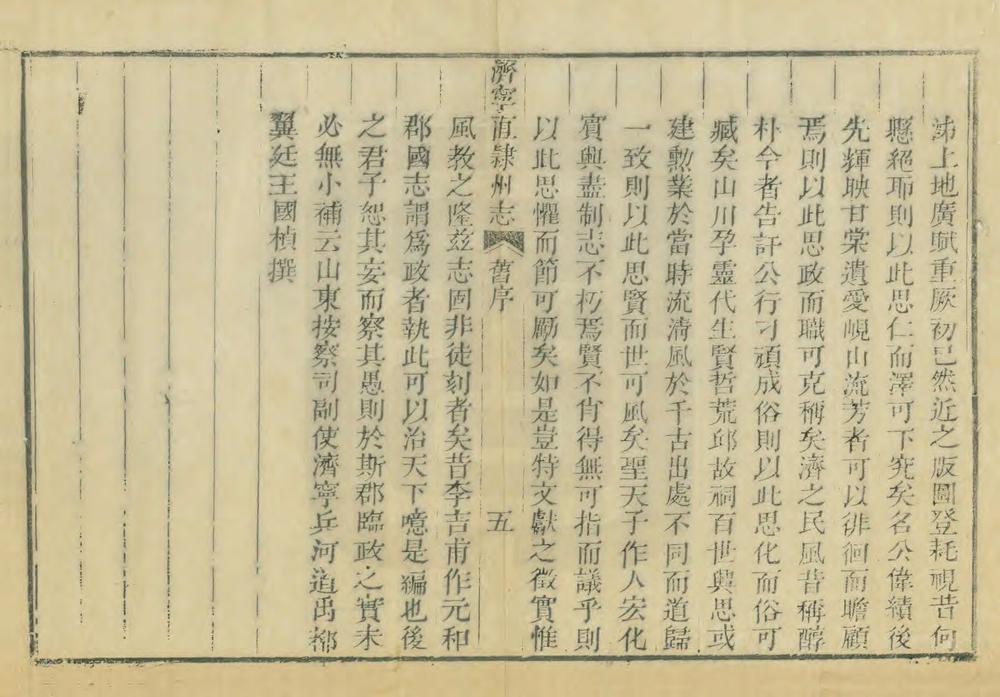 沛上地廣賦重厥初已然近之版圖登耗視昔何
懸絕耶則以此思仁而澤可下究矣名公偉績後
先輝映甘棠遺愛峴山流芳者可以徘徊而瞻顧
焉則以此思政而職可克稱矣濟之民風昔稱醇
朴今者告訐公行刁頑成俗則以此思化而俗可
臧矣山川孕靈代生賢哲荒邱故祠百世興思或
建勳業於當時流清風於千古出處不同而道歸
一致則以此思賢而世可風矣聖天子作人宏化
賓興盡制志不朽焉賢不肖得無可指而議乎則
以此思懼而節可勵矣如是豈特文獻之徵實惟
濟寧直隸州志 舊序 五
風教之隆茲志固非徒刻者矣昔李吉甫作元和
郡國志謂爲政者執此可以治天下噫是編也後
之君子恕其妄而察其愚則於斯郡臨政之實未
必無小補云山東按察司副使濟寧兵河道禹
翼廷王國楨撰